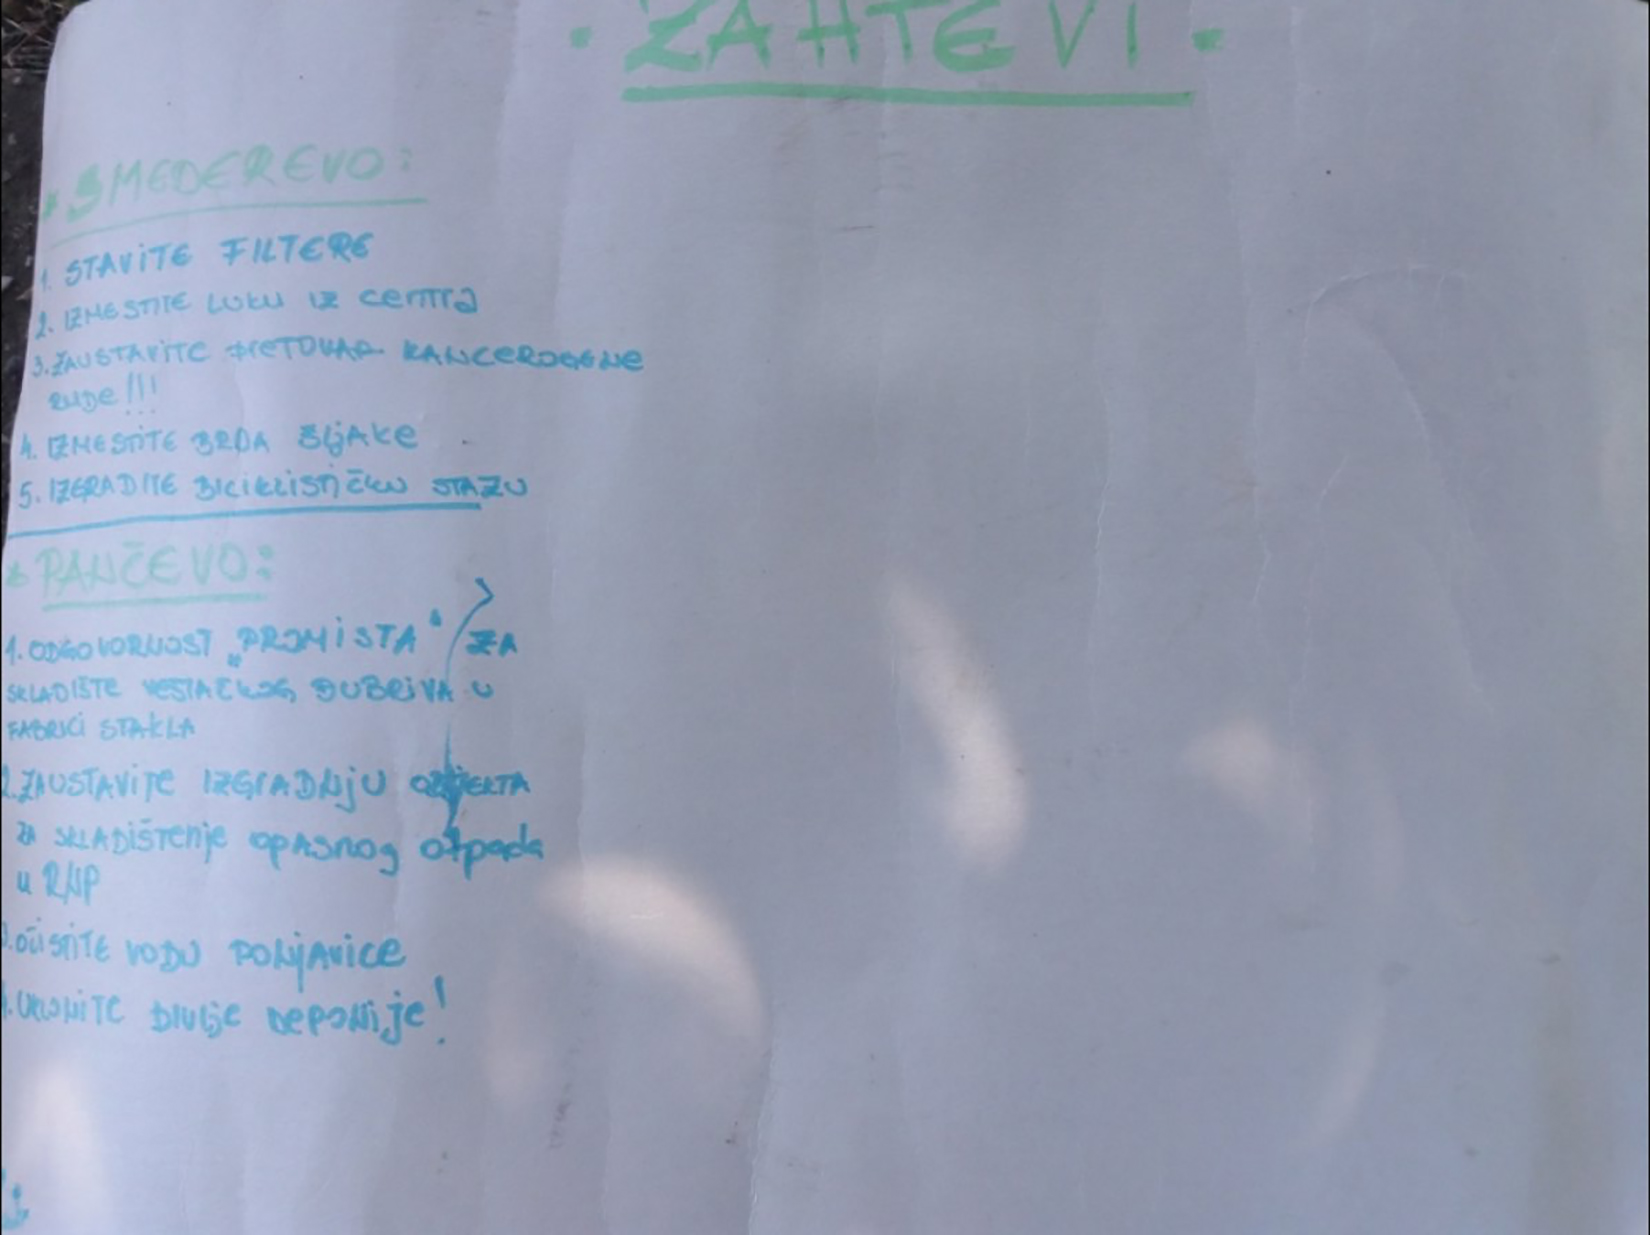 • ZAHTEVI •
• SMEDEREVO:
1. STAVITE FILTERE
2. IZMESTITE LUKU IZ CENTRA
3. ZAUSTAVITE PRETOVAR KANCEROGENE
RUDE!!!
4. IZMESTITE BRDA ŠLJAKE
5. IZGRADITE BICIKLISTIČKU STAZU
• PANČEVO:
1. ODGOVORNOST „PROMISTA" ZA
SKLADIŠTE VEŠTAČKOG ĐUBRIVA U
FABRICI STAKLA
2. ZAUSTAVITE IZGRADNJU OBJEKTA
ZA SKLADIŠTENJE OPASNOG OTPADA
U RNP
3. OČISTITE VODU PONJAVICE
4. UKLONITE DIVLJE DEPONIJE!